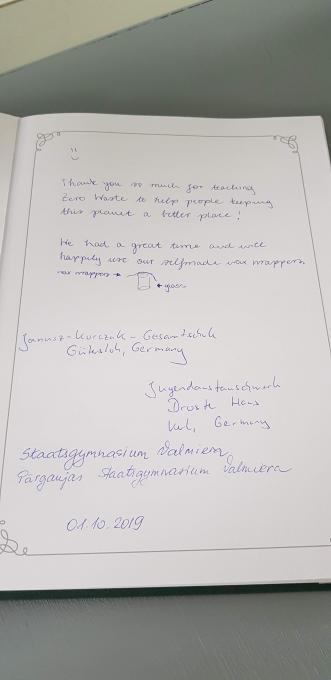 :)
Thank you so much for teaching
Zero Waste to help people keeping
this planet a better place!
We had a great time and will
happily use our selfmade wax wrappers
wax wrappers → ← glass
Janusz-Korczak-Gesamtschule
Gütersloh, Germany
Jugendaustauschwerk
Droste Haus
Verl, Germany
Staatsgymnasium Valmiera
Pārgaujas Staatsgymnasium Valmiera
01.10.2019